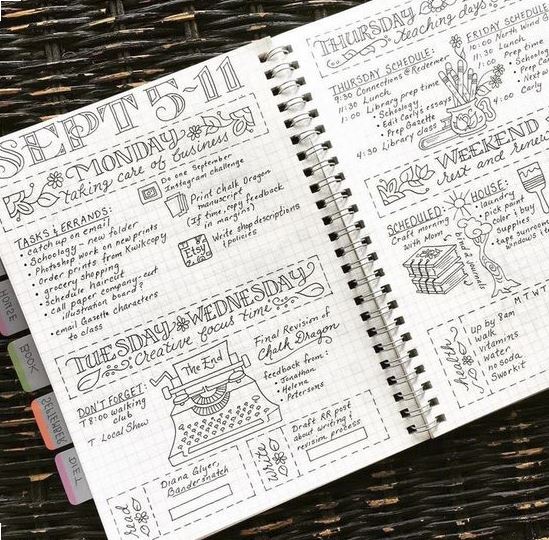 SEPT 5-11
MONDAY
taking care of business
TASKS & ERRANDS:
• catch up on email
• Schoology - new folder
• Photoshop work on new prints
• Order prints from Kwikcopy
• grocery shopping
• schedule haircut
• call paper company: cut
illustration board?
• email Gazette characters
to class
Do one September
Instagram challenge
Print Chalk Dragon
manuscript
(If time, copy feedback
in margins)
Etsy
Write shop descriptions
& policies
TUESDAY & WEDNESDAY
Creative focus time
DON'T FORGET:
T 8:00 walking
club
T Local Show
The End
Final Revision of
Chalk Dragon
feedback from:
• Jonathan
• Helena
• Petersons
read
Diana Glyer,
Bandersnatch
write
Draft RR post
about writing &
revision process
HOUSE
BOOK
DIET
THURSDAY
teaching days
THURSDAY SCHEDULE:
9:30 Connections @ Redeemer
11:30 Lunch
1:00 Library prep time
• Schoology
• Edit Carly's essays
• Prep Gazette
4:30 Library class
FRIDAY SCHEDULE
10:00 North Wind @
11:30 Lunch
1:00 Prep time
• Schoology
• Prep
• Next
4:00 Carly
WEEKEND
rest and renew
SCHEDULED:
Craft morning
with Mom
bind 2 journals
HOUSE:
• laundry
• pick paint
color & buy
supplies
• tape sunroom
windows &
health
M T W T
up by 8am
walk
vitamins
water
no soda
Sworkit